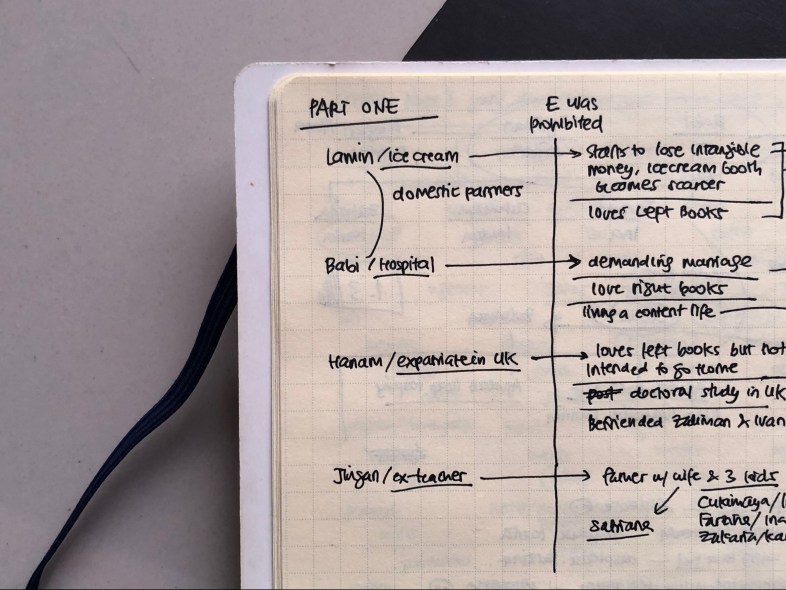 PART ONE
E was
prohibited
Lamin / ice cream
starts to lose intangible
money, icecream booth
becomes scarcer
domestic partners
loves left books
Babi / Hospital
demanding marriage
love right books
living a content life
Hanam / expatriate in UK
loves left books but not
intended to go home
post doctoral study in UK
Befriended Zaliman & Wan
Jingan / ex-teacher
farmer w/ wife & 3 kids